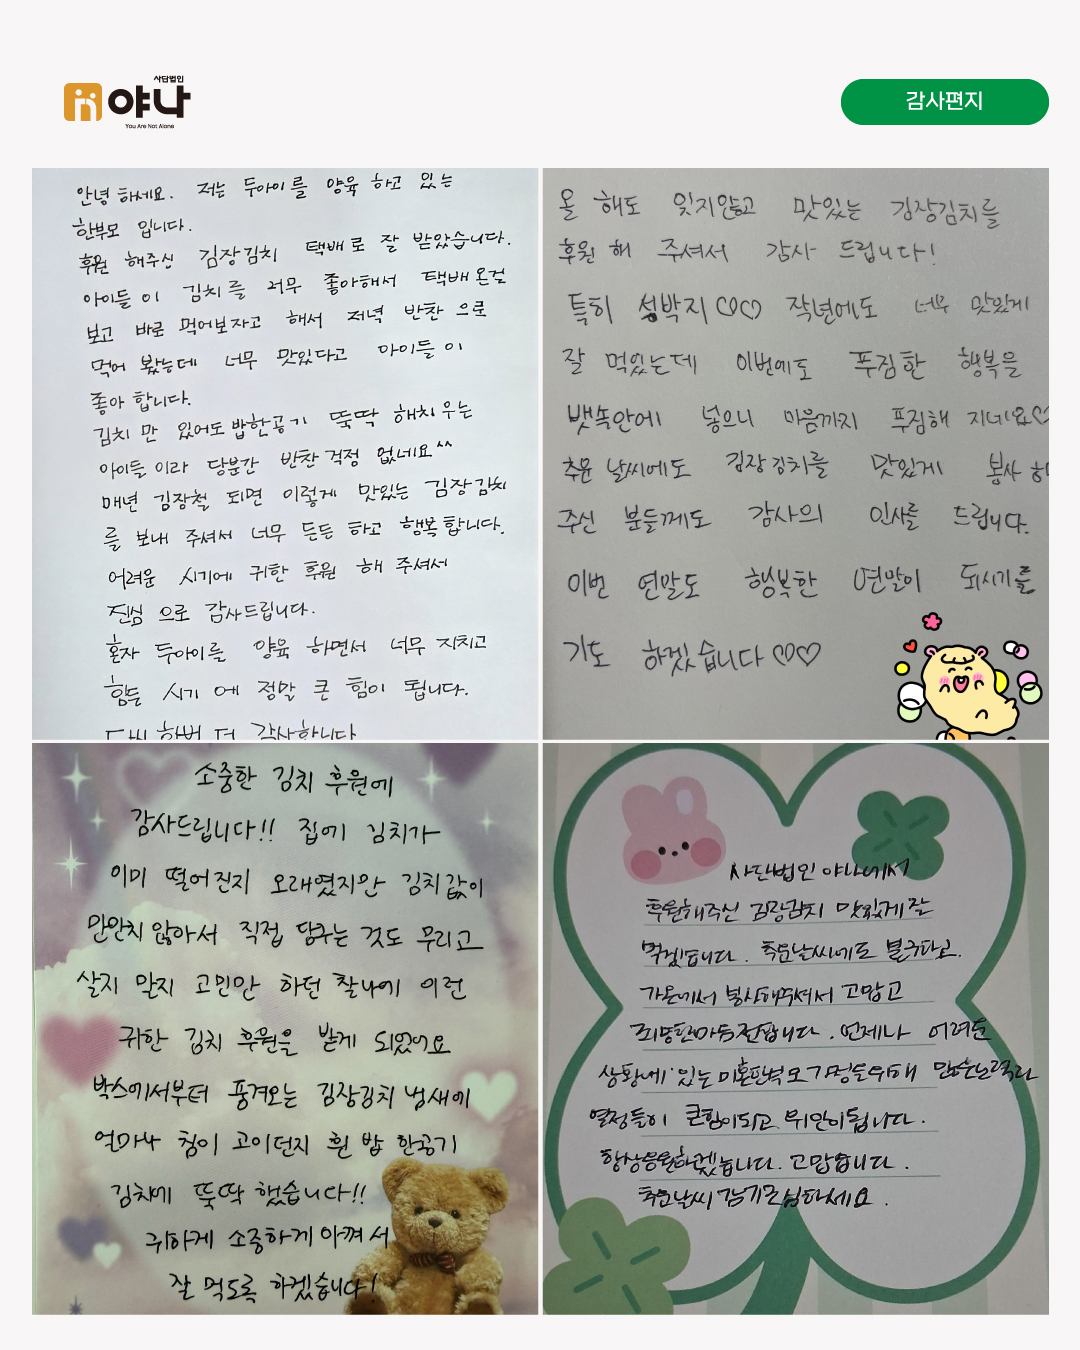 사단법인
야나
You Are Not Alone
감사편지
안녕하세요. 저는 두아이를 양육 하고 있는
한부모 입니다.
후원 해주신 김장김치 택배로 잘 받았습니다.
아이들이 김치를 너무 좋아해서 택배온걸
보고 바로 먹어보자고 해서 저녁 반찬 으로
먹어 봤는데 너무 맛있다고 아이들이
좋아 합니다.
김치 만 있어도 밥한공기 뚝딱 해치우는
아이들 이라 당분간 반찬걱정 없네요^^
매년 김장철 되면 이렇게 맛있는 김장김치
를 보내 주셔서 너무 든든 하고 행복합니다.
어려운 시기에 귀한 후원 해 주셔서
진심 으로 감사드립니다.
혼자 두아이를 양육 하면서 너무 지치고
힘든 시기 에 정말 큰 힘이 됩니다.
한번 더 감사합니다
올 해도 잊지않고 맛있는 김장김치를
후원 해 주셔서 감사 드립니다!
특히 섞박지♡♡ 작년에도 너무 맛있게
잘 먹었는데 이번에도 푸짐한 행복을
뱃속안에 넣으니 마음까지 푸짐해 지네요♡
추운 날씨에도 김장김치를 맛있게 봉사 해
주신 분들께도 감사의 인사를 드립니다.
이번 연말도 행복한 연말이 되시기를
기도 하겠습니다♡♡
소중한 김치 후원에
감사드립니다!! 집에 김치가
이미 떨어진지 오래였지만 김치값이
만만치 않아서 직접 담구는 것도 무리고
살지 말지 고민만 하던 찰나에 이런
귀한 김치 후원을 받게 되었어요
박스에서부터 풍겨오는 김장김치 냄새에
얼마나 침이 고이던지 흰 밥 한공기
김치에 뚝딱 했습니다!!
귀하게 소중하게 아껴서
잘 먹도록 하겠습니다!
사단법인 야나에서
후원해주신 김장김치 맛있게 잘
먹겠습니다. 추운날씨에도 불구하고
가운데서 봉사해주셔서 고맙고
죄송한마음전합니다. 언제나 어려운
상황에 있는 미혼한부모가정들위해
열정들이 큰힘이되고 위안이됩니다.
항상응원하겠습니다. 고맙습니다.
추운날씨 감기조심하세요.